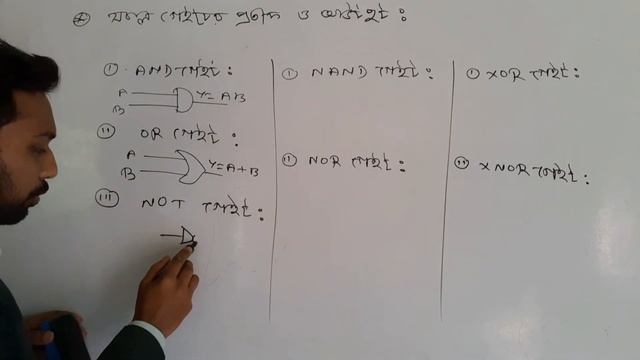 সকল গেইটের প্রতীক ও আউটপুট :
i AND গেইট :
A
B
Y = AB
ii OR গেইট :
A
B
Y = A + B
iii NOT গেইট :
i NAND গেইট :
ii NOR গেইট :
i XOR গেইট :
ii XNOR গেইট :